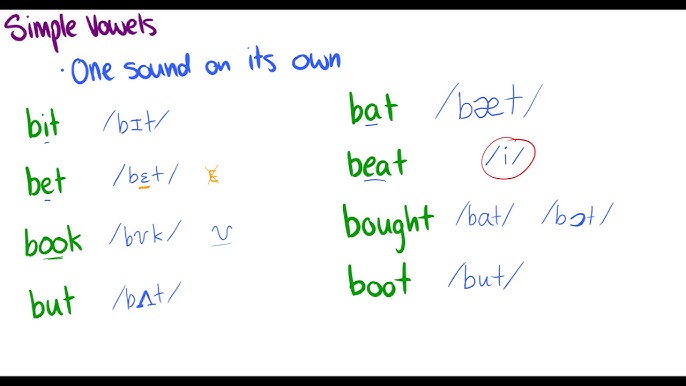 Simple Vowels
· One sound on its own
bit /bɪt/
bet /bɛt/ ɛ
book /bʊk/ ʊ
but /bʌt/
bat /bæt/
beat /i/
bought /bat/ /bɔt/
boot /but/